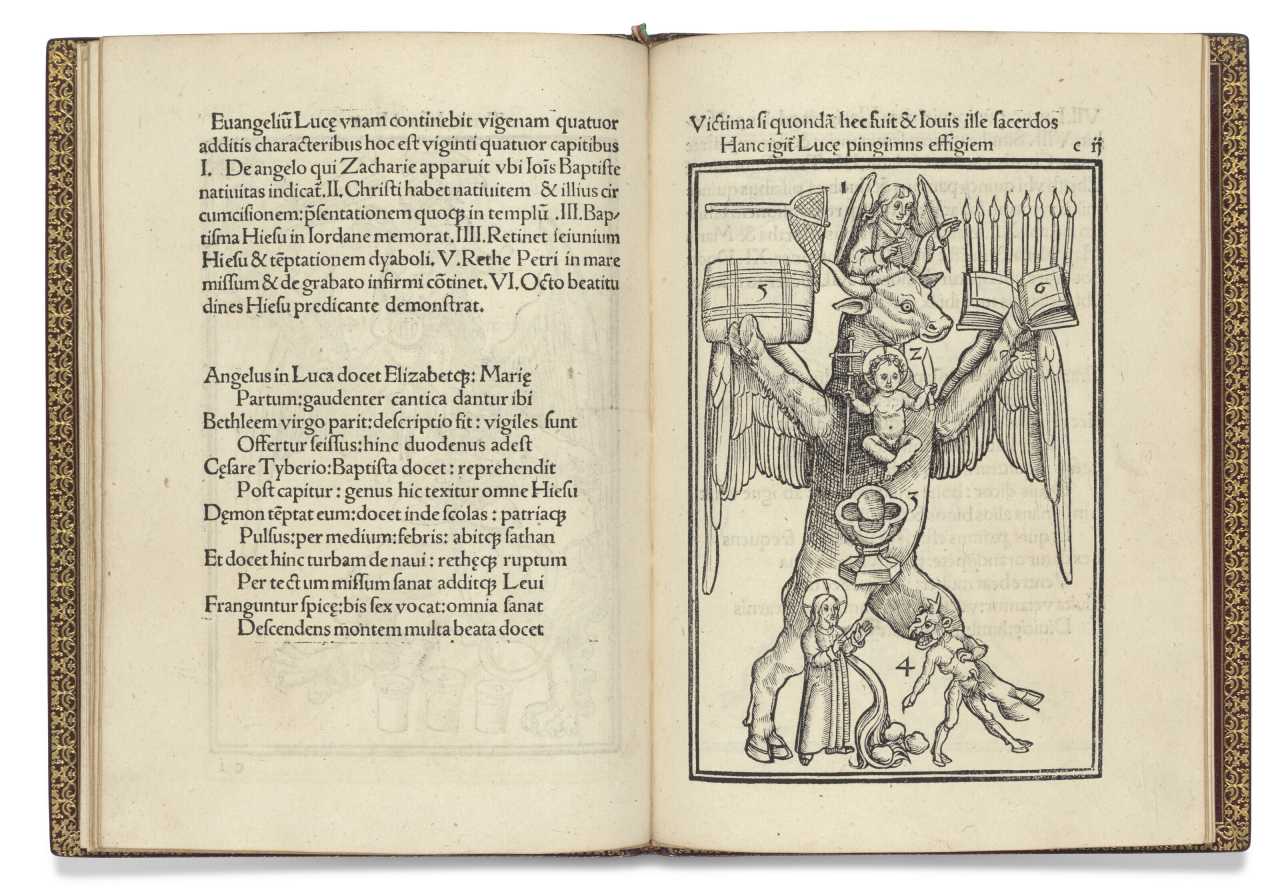 Euangeliũ Lucę vnam continebit vigenam quatuor
additis characteribus hoc est viginti quatuor capitibus
I. De angelo qui Zacharie apparuit vbi Ioĩs Baptiste
natiuitas indicat̃. II. Christi habet natiuitem & illius cir
cumcisionem: p̃sentationem quoqꝫ in templũ .III. Bap-
tisma Hiesu in Iordane memorat. IIII. Retinet ieiunium
Hiesu & tẽptationem dyaboli. V. Rethe Petri in mare
missum & de grabato infirmi cõtinet. VI. Octo beatitu
dines Hiesu predicante demonstrat.
Angelus in Luca docet Elizabetqꝫ: Marię
Partum: gaudenter cantica dantur ibi
Bethleem virgo parit: descriptio fit: vigiles sunt
Offertur scissus: hinc duodenus adest
Cęsare Tyberio: Baptista docet: reprehendit
Post capitur: genus hic texitur omne Hiesu
Dęmon tẽptat eum: docet inde scolas: patriaqꝫ
Pulsus: per medium: febris: abitqꝫ sathan
Et docet hinc turbam de naui: rethęqꝫ ruptum
Per tectum missum sanat additqꝫ Leui
Franguntur spicę: bis sex vocat: omnia sanat
Descendens montem multa beata docet
Victima si quondã hec fuit & Iouis ille sacerdos
Hanc igit̃ Lucę pingimns effigiem c ij
1
5
6
2
3
4